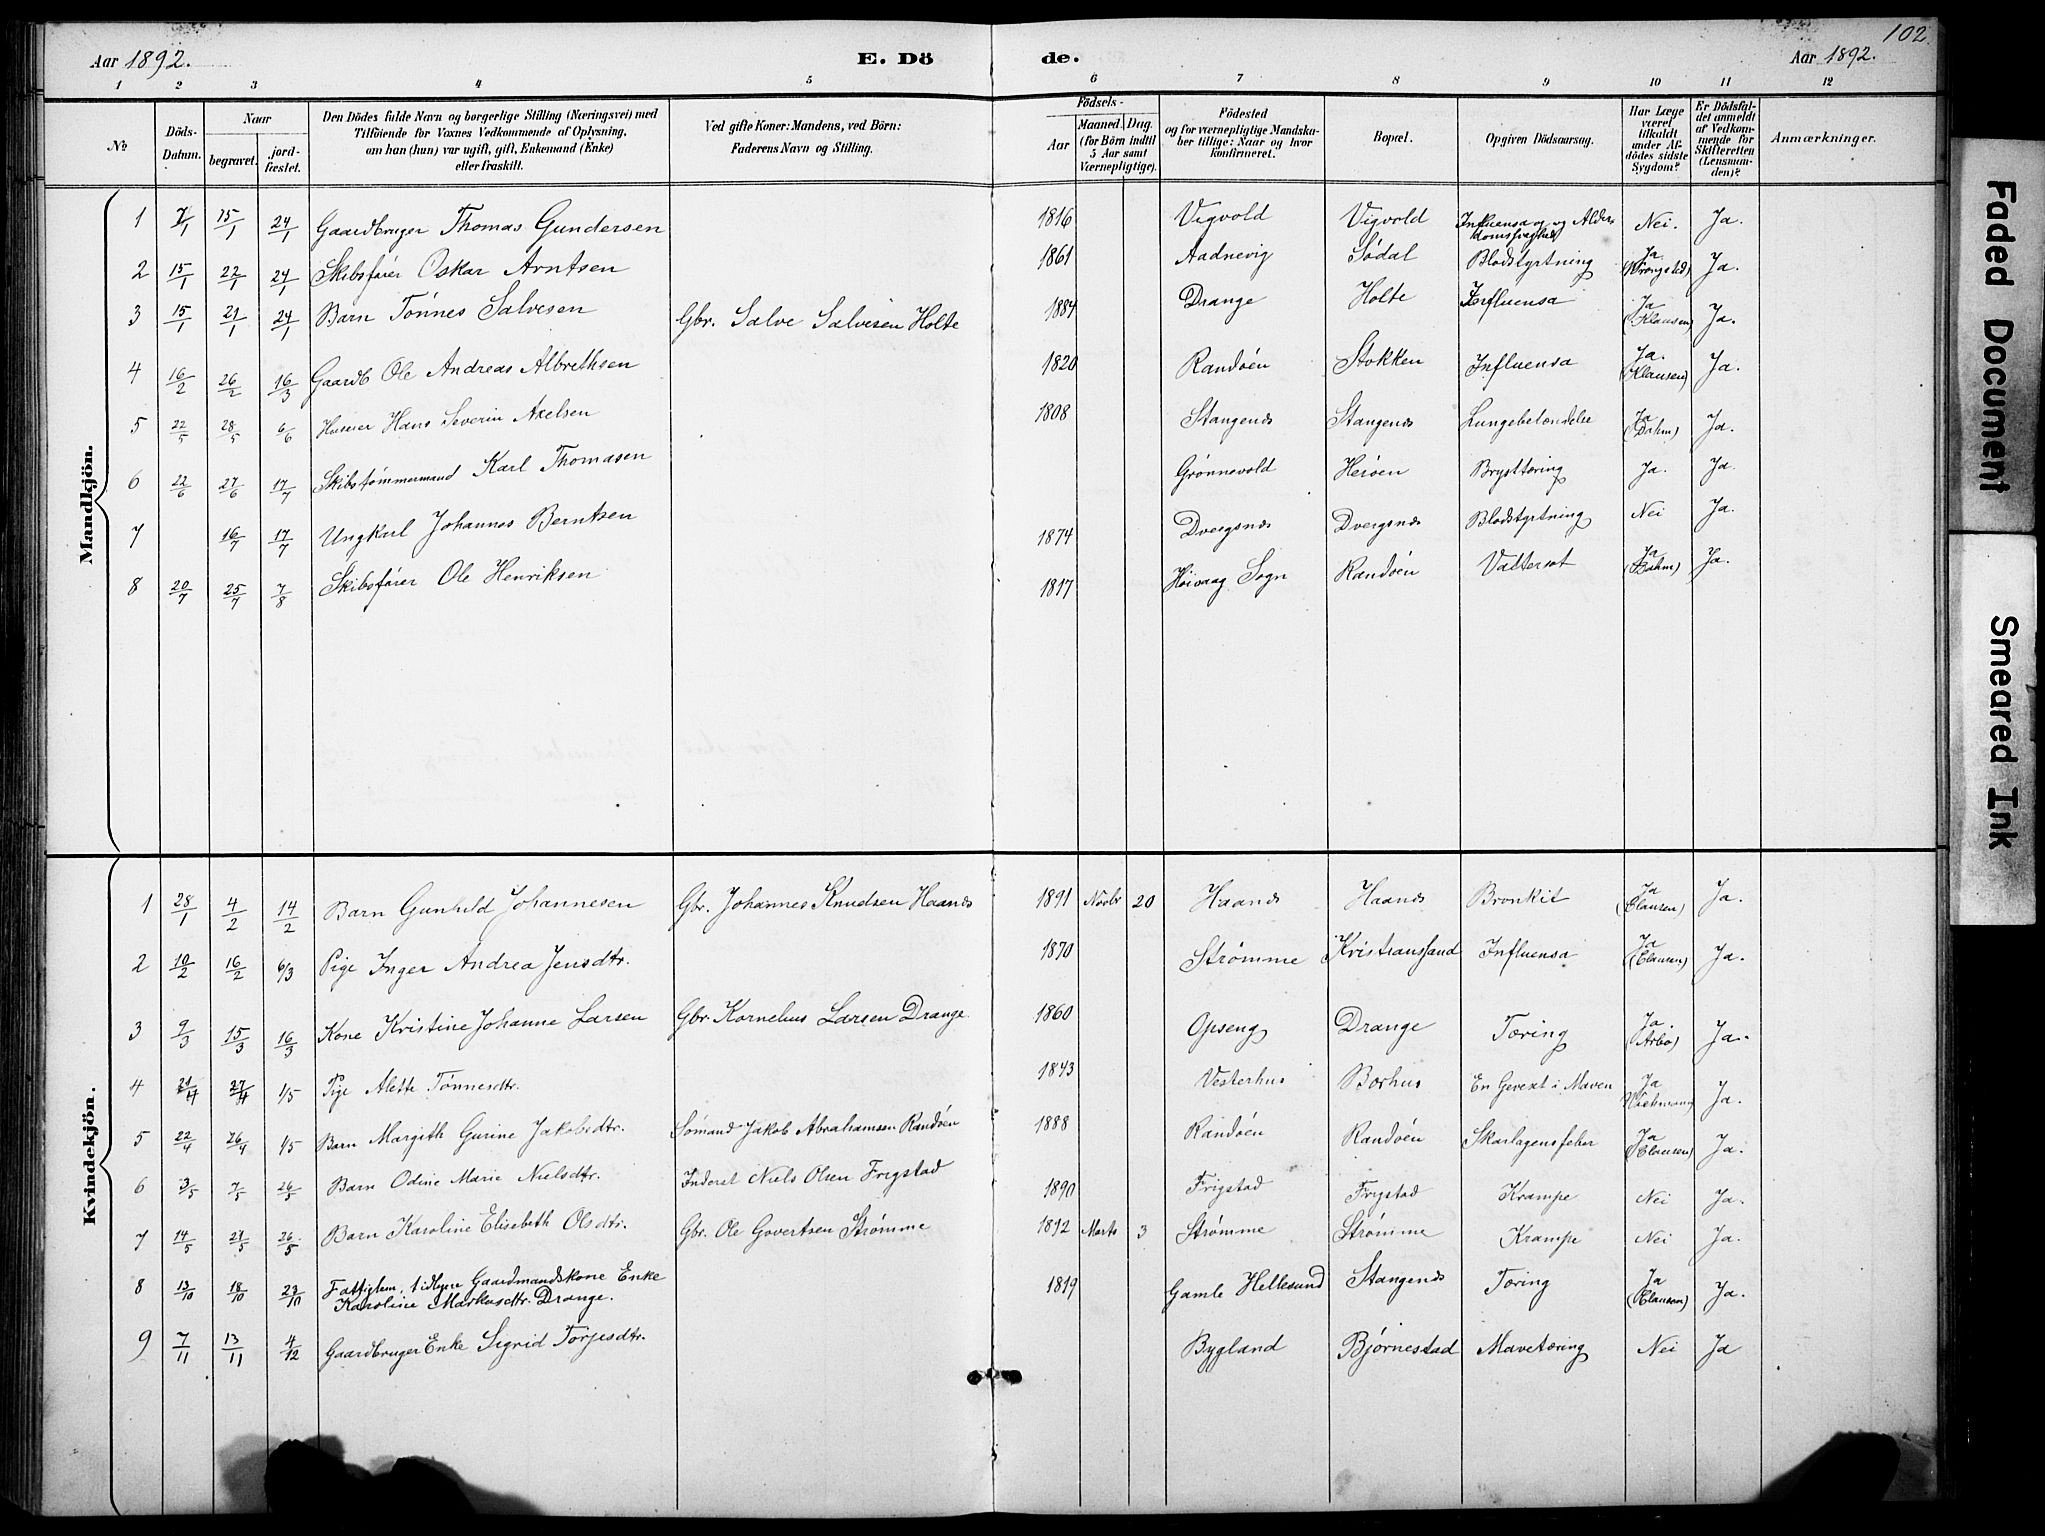 102
Aar 1892. E. Dö de. Aar 1892.
1 2 3 4 5 6 7 8 9 10 11 12
No
Döds-Datum.
Naar
begravet.
jord-fæstet.
Den Dödes fulde Navn og borgerlige Stilling (Næringsvei) med
Tilföiende for Voxnes Vedkommende af Oplysning,
om han (hun) var ugift, gift, Enkemand (Enke)
eller fraskilt.
Ved gifte Koner: Mandens, ved Börn:
Faderens Navn og Stilling.
Födsels-
Aar
Maaned. Dag.
(for Börn indtil
5 Aar samt
Værnepligtige).
Födested
og for værnepligtige Mandska-
ber tillige: Naar og hvor
konfirmeret.
Bopæl.
Opgiven Dödsaarsag.
Har Læge
været
tilkaldt
under Af-
dödes sidste
Sygdom?
Er Dödsfal-
det anmeldt
af Vedkom-
mende for
Skifteretten
(Lensman-
den)?
Anmærkninger.
Mandkjön.
1 7/1 15/1 24/1 Gaardbruger Thomas Gundersen 1816 Vigvold Vigvold Influensa og Alder-
domssvaghed Nei. Ja.
2 15/1 22/1 24/1 Skibsfører Oskar Arntsen 1861 Aadnevig Sødal Blodstyrtning Ja Ja.
3 15/1 21/1 24/1 Barn Tønnes Salvesen Gbr. Salve Salvesen Holte 1884 Drange Holte Influensa Ja (Klausen) Ja.
4 16/2 26/2 16/3 Gaardb Ole Andreas Albrethsen 1820 Randøen Stokken Influensa Ja. (Klausen) Ja.
5 22/5 28/5 6/6 Hans Severin Axelsen 1808 Stangenes Stangenes Lungebetændelse Ja (Dahm) Ja.
6 22/6 27/6 17/7 Skibstømmermand Karl Thomasen Grønnevold Herøen Brysttæring Ja. Ja.
7 16/7 17/7 Ungkarl Johannes Berntsen 1874 Dvergsnes Dvergsnes Blodstyrtning Nei Ja.
8 20/7 25/7 7/8 Skibsfører Ole Henriksen 1817 Høivaag Sogn Randøen Vattersot Ja (Dahm) Ja.
Kvindekjön.
1 28/1 4/2 14/2 Barn Gunhild Johannesen Gbr. Johannes Knudsen Haanes 1891 Novbr 20 Haanes Haanes Bronkit Ja (Clausen) Ja.
2 10/2 16/2 6/3 Pige Inger Andrea Jensdtr. 1870 Strømme Kristianssand Influensa Ja (Clausen) Ja.
3 9/3 15/3 16/3 Kone Kristine Johanne Larsen Gbr. Kornelius Larsen Drange. 1860 Opseng Drange Tæring Ja. (Arbo) Ja.
4 21/4 27/4 1/5 Pige Alette Tønnesdtr. 1843 Vesterhus Borhus En Gevext i Maven Ja Ja.
5 22/4 26/4 1/5 Barn Margith Gurine Jakobsdtr. Sømand Jakob Abrahamsen Randøen 1888 Randøen Randøen Skarlagensfeber Ja (Clausen) Ja.
6 3/5 7/5 26/5 Barn Odine Marie Nielsdtr. Inderst Niels Olsen Frigstad 1890 Frigstad Frigstad Krampe Nei Ja.
7 14/5 21/5 26/5 Barn Karoline Elisebeth Olsdtr. Gbr. Ole Govertsen Strømme 1892 Marts 3 Strømme Strømme Krampe Nei Ja.
8 13/10 18/10 23/10 Fattiglem, tidligere Gaardmandskone Enke
Karoline Markusdtr. Drange. 1819 Gamle Hellesund Stangenes Tæring Ja (Clausen) Ja.
9 7/11 13/11 4/12 Gaardbruger Enke Sigrid Torjesdtr. Bygland Bjørnestad Mavetæring Nei Ja
Faded Document
Smeared Ink